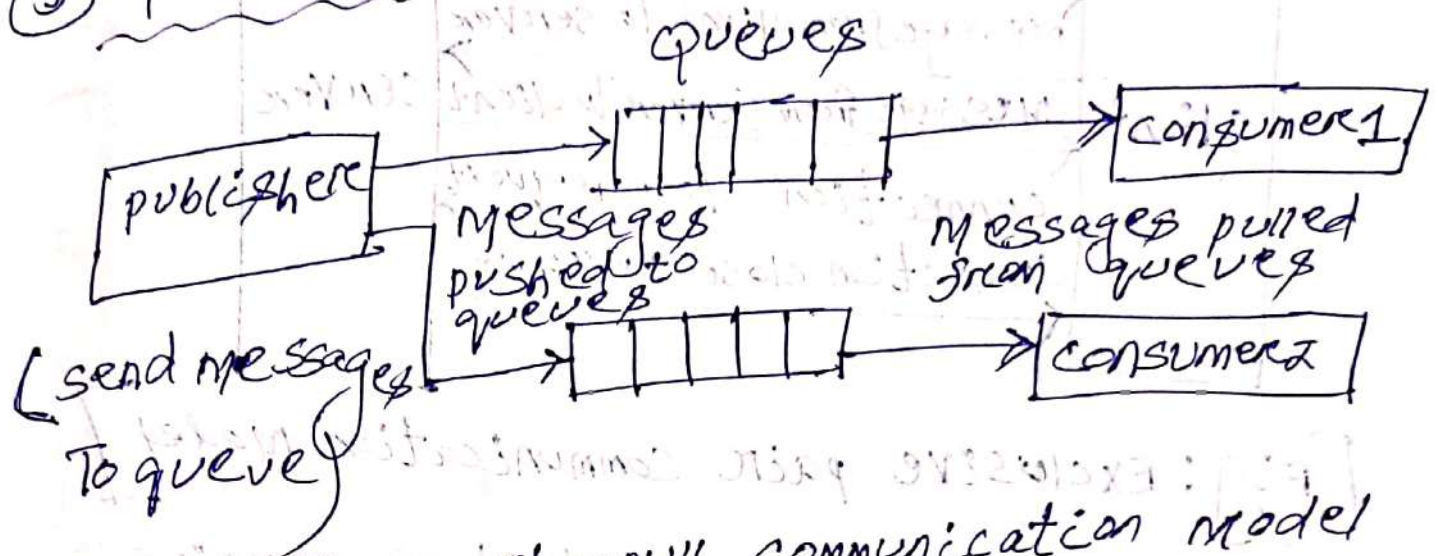 3
Queues
publisher
consumer1
Messages
pushed to
queues
Messages pulled
from queues
(send messages
To queue)
consumer2
communication model